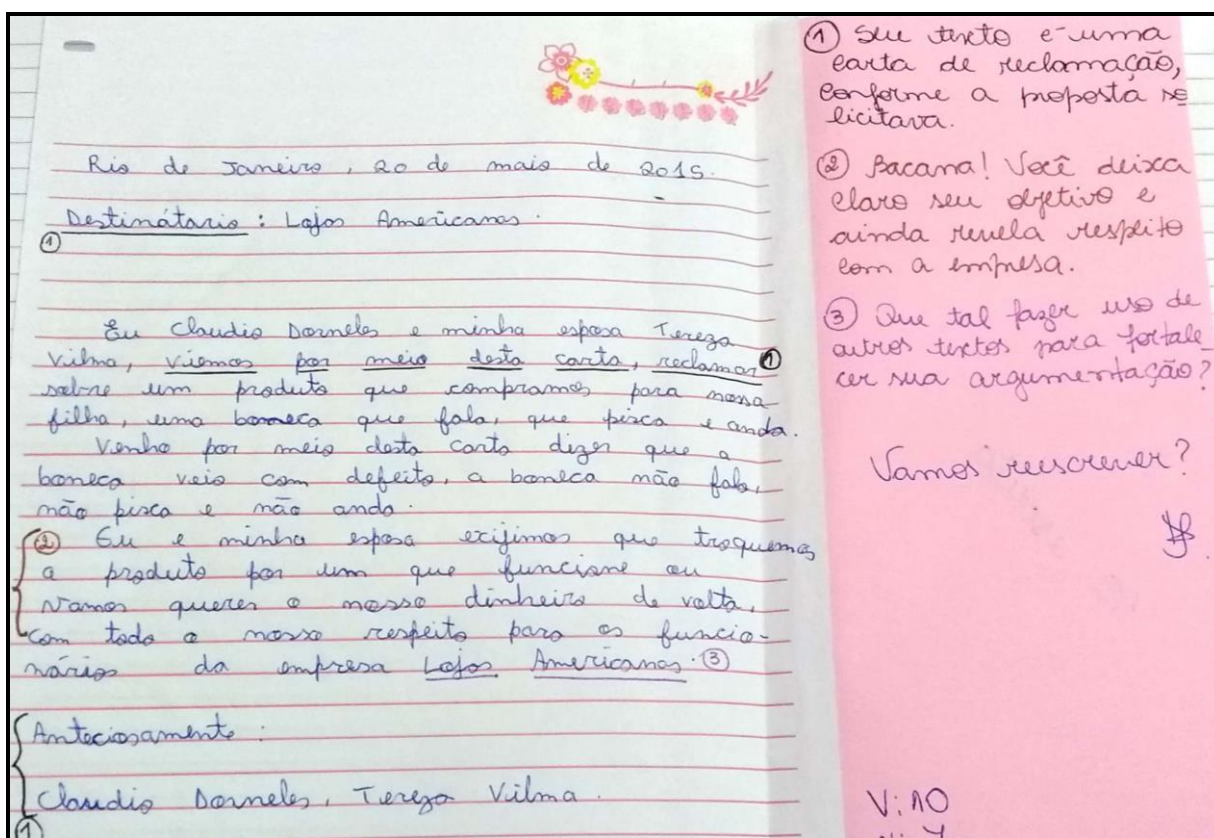 Rio de Janeiro, 20 de maio de 2015.
Destinatário: Lojas Americanas.
①
Eu Claudio Dorneles e minha esposa Tereza
Vilma, viemos por meio desta carta, reclamar ①
sobre um produto que compramos para nossa
filha, uma boneca que fala, que pisca e anda.
Venho por meio desta carta dizer que a
boneca veio com defeito, a boneca não fala,
não pisca e não anda.
② Eu e minha esposa exijimos que troquemos
a produto por um que funcione ou
vamos querer o nosso dinheiro de volta,
com todo o nosso respeito para os funcio-
nários da empresa Lojas Americanas. ③
Anteciosamente:
Claudio Dorneles, Tereza Vilma.
①
① Seu texto é uma
carta de reclamação,
conforme a proposta so
licitava.
② Bacana! Você deixa
claro seu objetivo e
ainda revela respeito
com a empresa.
③ Que tal fazer uso de
outros textos para fortale_
cer sua argumentação?
Vamos reescrever?
V: 10